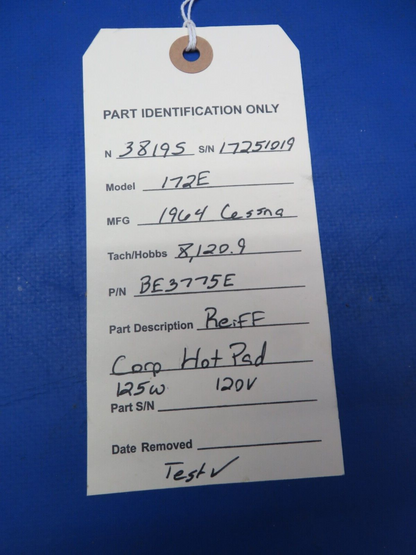 PART IDENTIFICATION ONLY
N 3819S S/N 17251019
Model 172E
MFG 1964 Cessna
Tach/Hobbs 8,120.9
P/N BE3775E
Part Description ReiFF
Corp Hot Pad
125W 120V
Part S/N
Date Removed
Test ✓